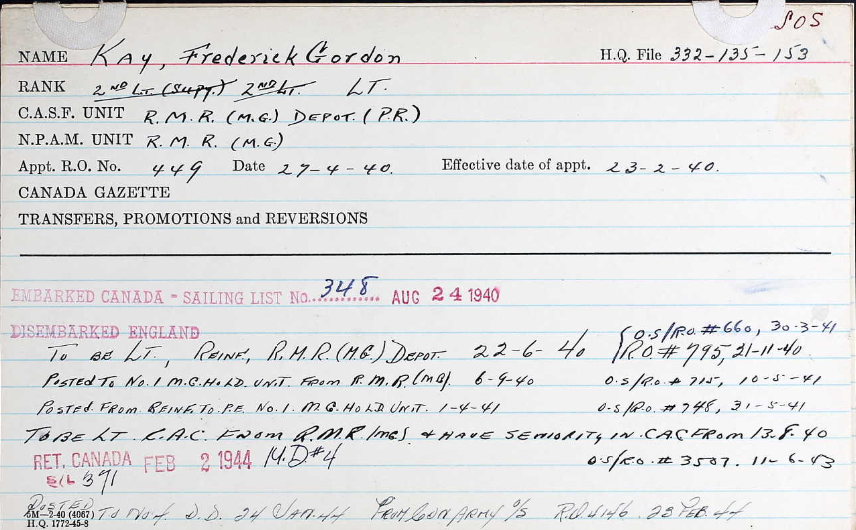 SOS
NAME Kay, Frederick Gordon H.Q. File 332-135-153
RANK 2ND Lt. (Supy.) 2ND Lt. Lt.
C.A.S.F. UNIT R.M.R. (M.G.) DEPOT. (P.R.)
N.P.A.M. UNIT R.M.R. (M.G.)
Appt. R.O. No. 449 Date 27-4-40. Effective date of appt. 23-2-40.
CANADA GAZETTE
TRANSFERS, PROMOTIONS and REVERSIONS
EMBARKED CANADA - SAILING LIST No. 348 AUG 24 1940
DISEMBARKED ENGLAND O.S/R.O. #660, 30-3-41
To BE LT., REINF, R.M.R. (MG) DEPOT. 22-6-40 R.O #795, 21-11-40
POSTED TO No. 1 M.G. HOLD. UNIT. FROM R.M.R (MG). 6-9-40 O.S/R.O. # 715, 10-5-41
POSTED. FROM REINF. TO P.E. No. 1. M.G. HOLD UNIT. 1-4-41 O.S/R.O. # 748, 31-5-41
TO BE LT. C.A.C. FROM R.M.R (MG) + HAVE SENIORITY IN CAC FROM 13.8.40
RET. CANADA FEB 2 1944 M.D #4 O.S/R.O. # 3507. 11-6-43
S/L 371
POSTED TO No 4 D.D. 24 JAN. 44 FROM CDN ARMY O/S R.O 4146 23 FEB 44
5M-2-40 (4067)
H.Q. 1772-45-8